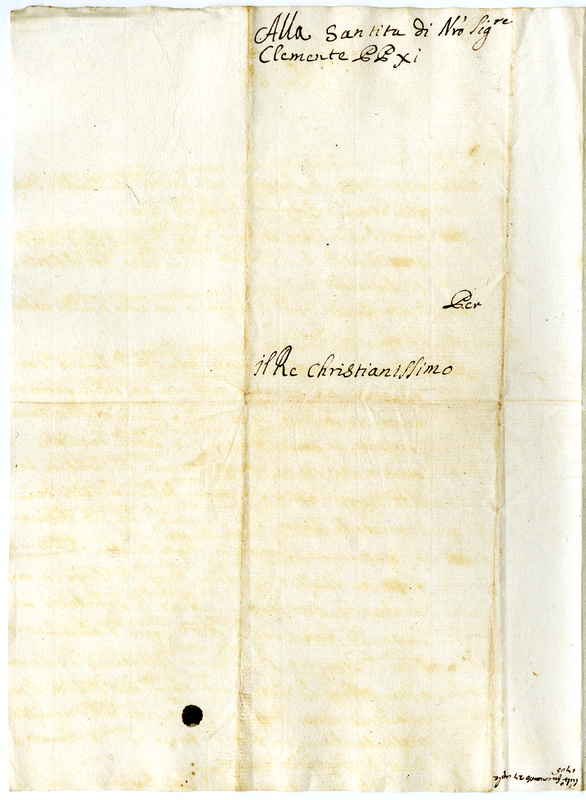 Alla Santita di Nrõ Sig.re
Clemente PP xi
Per
il Re Christianissimo
27
1706